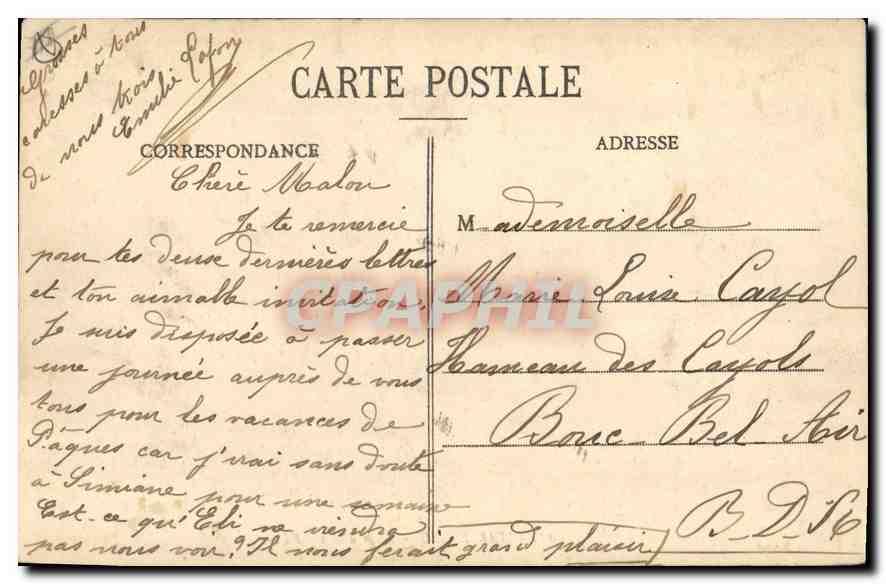 Grosses
caresses à tous
de nous trois
Emilie Lafon
CARTE POSTALE
CORRESPONDANCE
ADRESSE
Chère Malou
Je te remercie
pour tes deux dernières lettres
et ton aimable invitation.
Je suis disposée à passer
une journée auprès de vous
tous pour les vacances de
Pâques car j'irai sans doute
à Simiane pour une semaine
Est-ce qu'Eli ne viendra
pas nous voir? Il nous ferait grand plaisir
Mademoiselle
Marie Louise Cayol
Hameau des Cayols
Bouc-Bel-Air
B-D-R
CPAPHIL